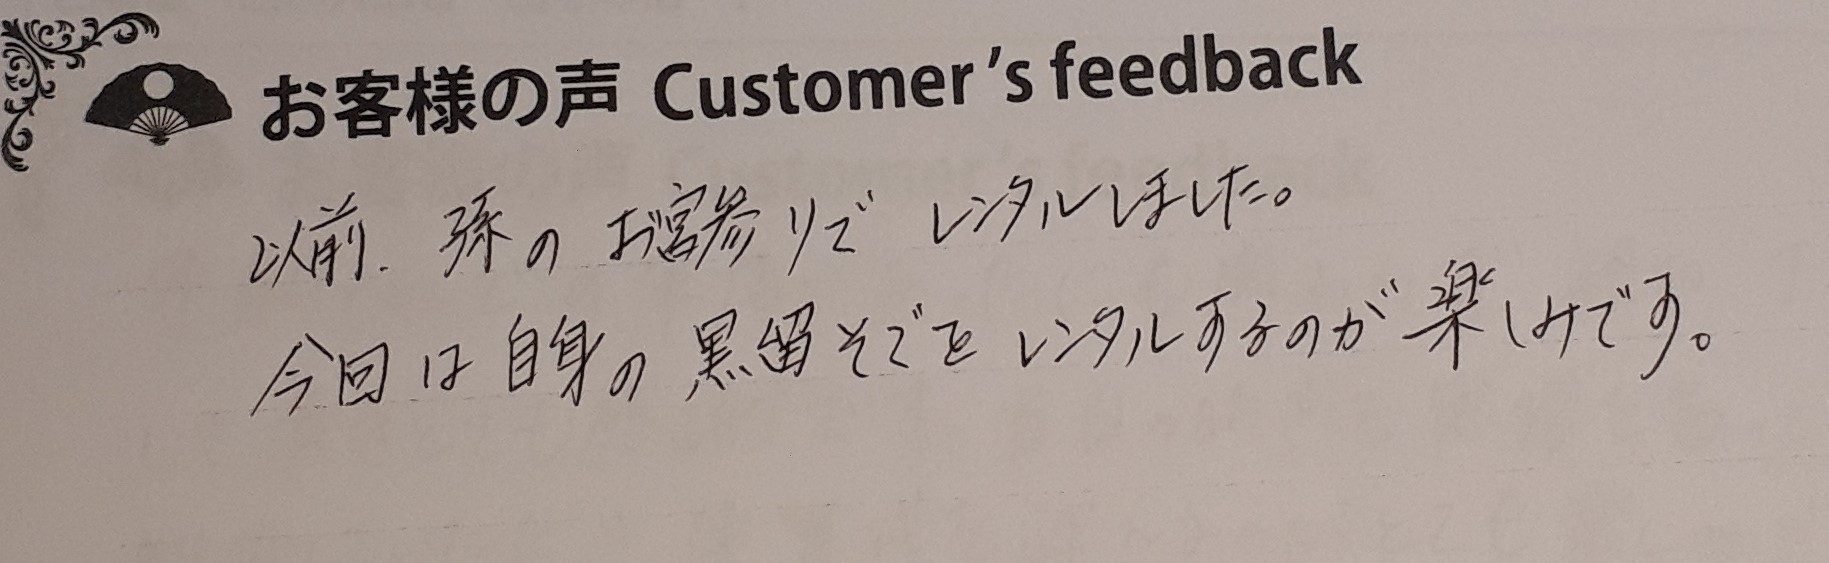 お客様の声 Customer's feedback
以前、孫のお宮参りでレンタルしました。
今回は自身の黒留そでをレンタルするのが楽しみです。